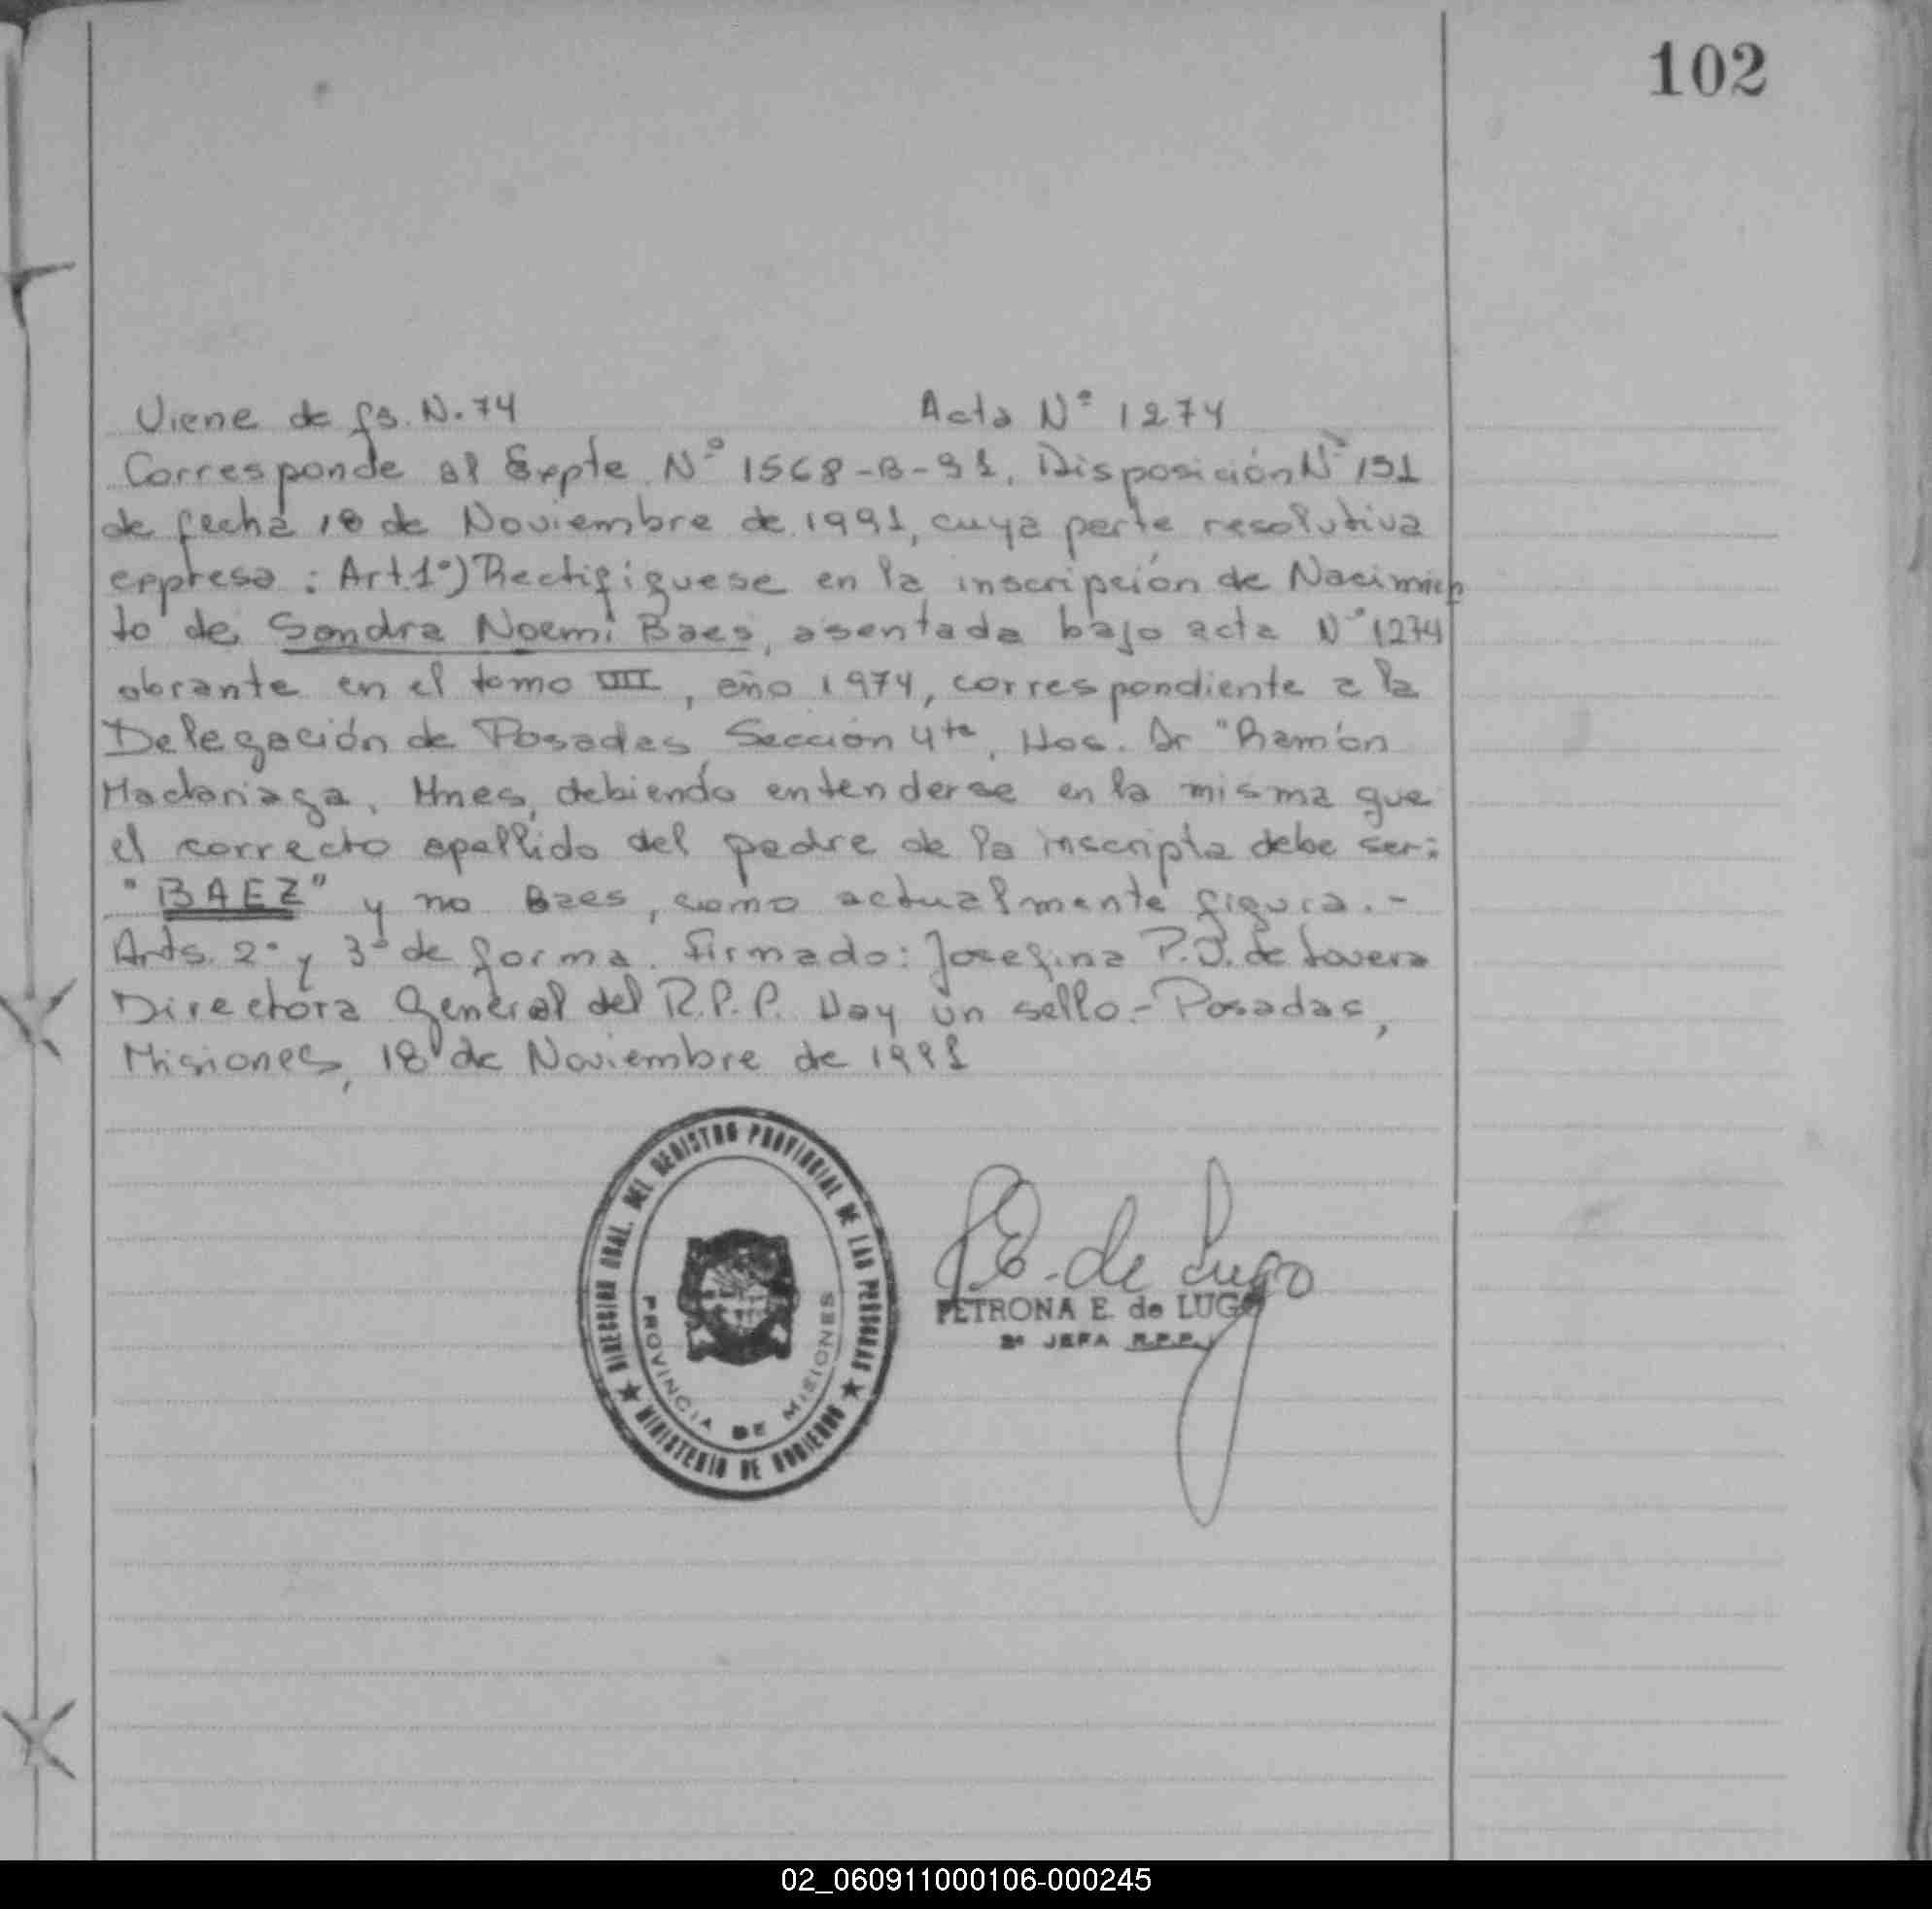 102
Viene de fs. N. 74 Acta Nº 1274
Corresponde al Expte. Nº 1568-B-91, Disposición Nº 191
de fecha 18 de Noviembre de 1991, cuya parte resolutiva
expresa: Art.1º) Rectifíquese en la inscripción de Nacimien
to de Sandra Noemí Baes, asentada bajo acta Nº 1274
obrante en el tomo IIII, año 1974, correspondiente a la
Delegación de Posadas, Sección 4ta, Hos. Dr "Ramón
Madariaga, Mnes, debiendo entenderse en la misma que
el correcto apellido del padre de la inscripta debe ser:
"BAEZ" y no Baes, como actualmente figura.-
Arts. 2º y 3º de forma. Firmado: Josefina P.J. de Lovera
Directora General del R.P.P. Hay un sello.- Posadas,
Misiones, 18 de Noviembre de 1991
DIRECCION GRAL. DEL REGISTRO PROVINCIAL DE LAS PERSONAS
PROVINCIA DE MISIONES
★ MINISTERIO DE GOBIERNO ★
P.E. de Lugo
PETRONA E. de LUGO
2ª JEFA R.P.P.
02_060911000106-000245